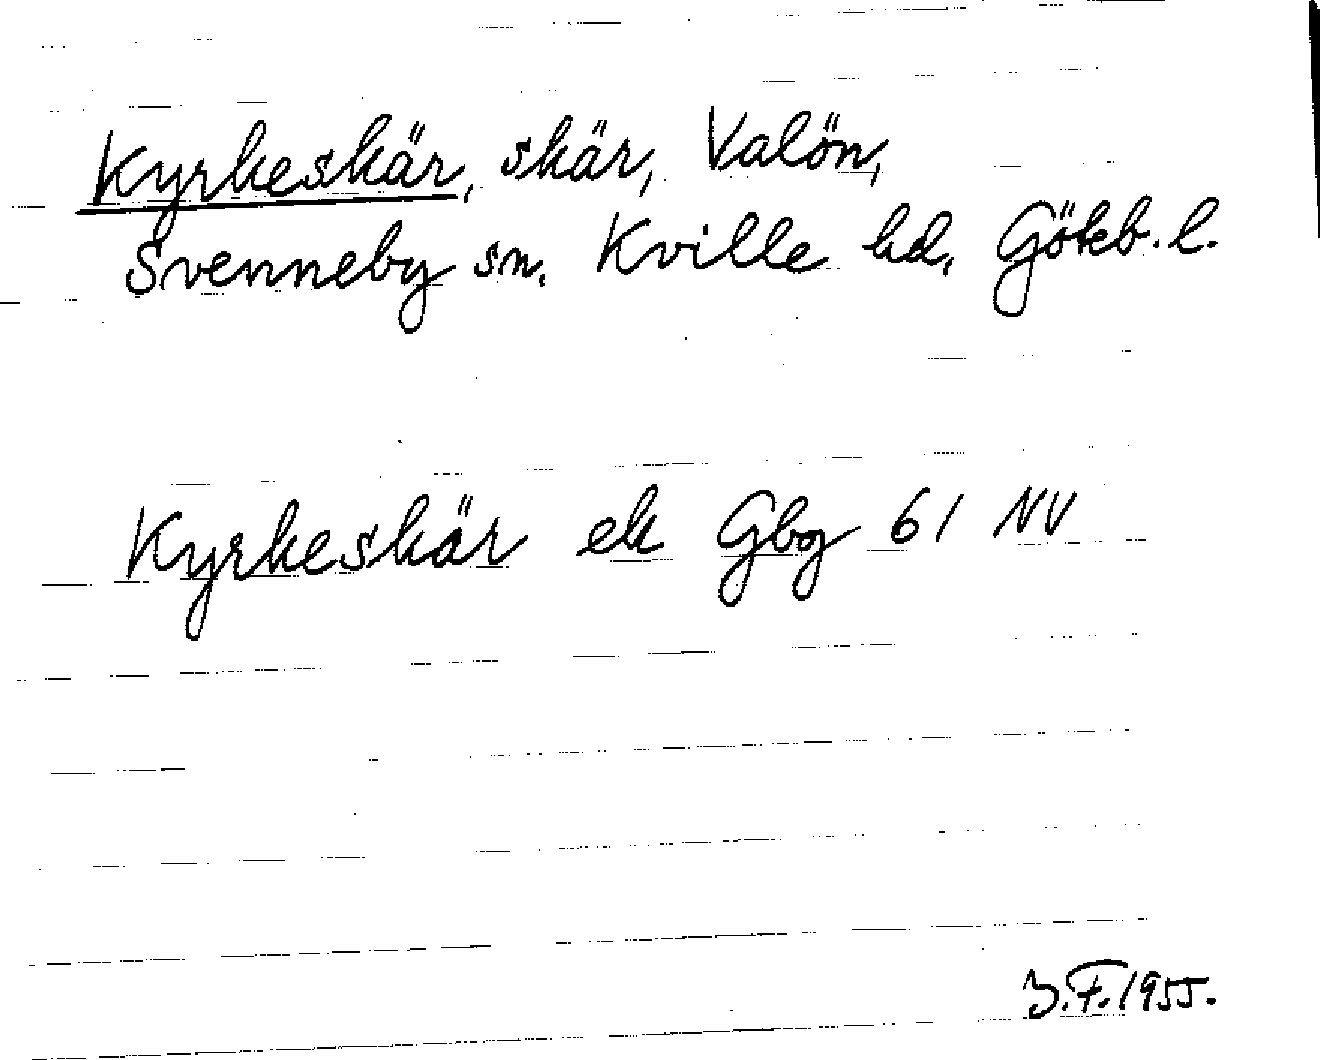 Kyrkeskär, skär, Valön,
Svenneby sn. Kville hd, Götéb. l.
Kyrkeskär ek Gbg 61 NV
J.F. 1955.